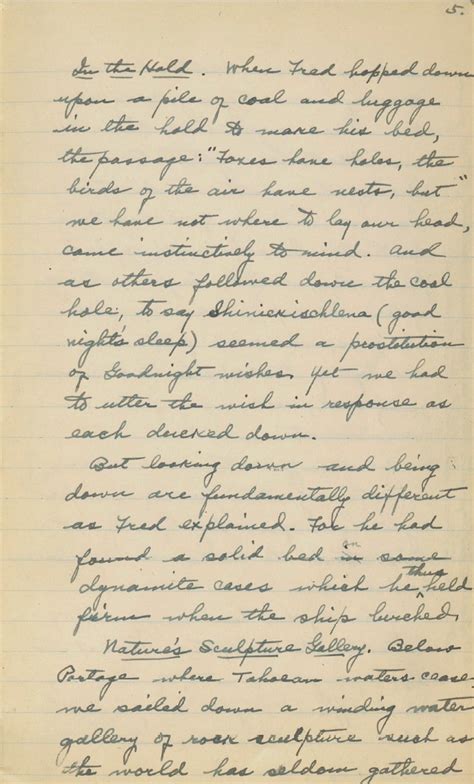 5.
In the Hold. When Fred hopped down
upon a pile of coal and luggage
in the hold to make his bed,
the passage: "Foxes have holes, the
birds of the air have nests, but"
we have not where to lay our head,
came instinctively to mind. And
as others followed down the coal
hole, to say (good
night's sleep) seemed a prostitution
of Goodnight wishes. Yet we had
to utter the wish in response as
each ducked down.
But looking down and being
down are fundamentally different
as Fred explained. For he had
found a solid bed on some
dynamite cases which he thus held
firm when the ship lurched.
Nature's Sculpture Gallery. Below
Portage where waters cease
we sailed down a winding water
gallery of rock sculpture such as
the world has seldom gathered